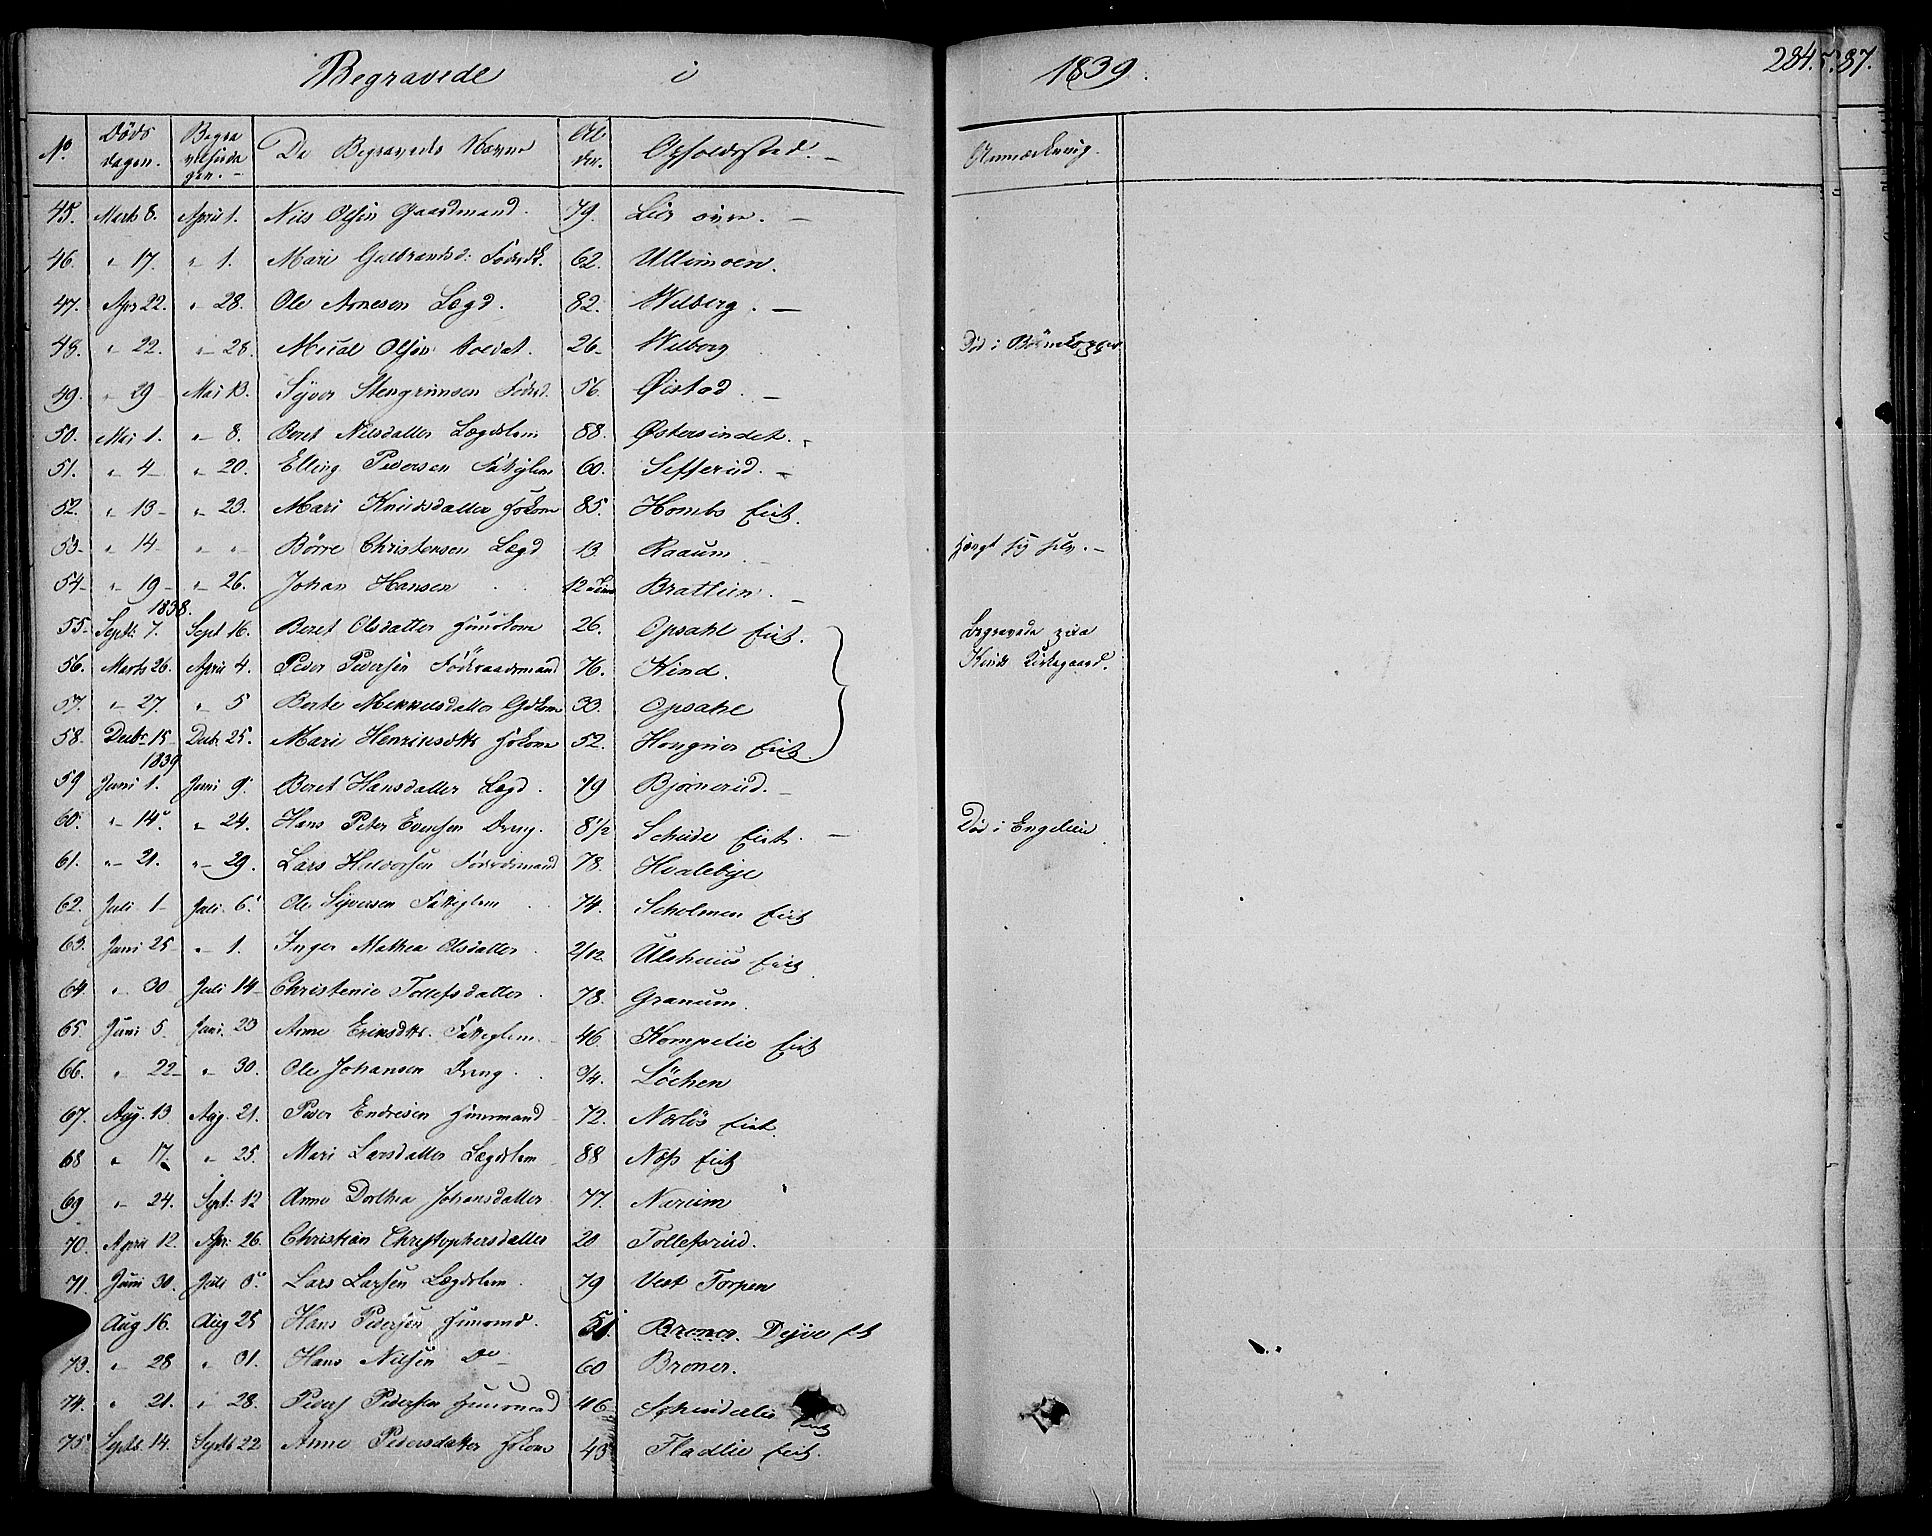 Begravede i 1839. 284. 87.
No. Døds dagen. Begravelsesdagen. De Begravedes Navne Alder. Opholdssted. Anmærkning.
45. Marts 8. April 1. Nils Olsen Gaardmand. 79. Lier øvre.
46. " 17. " 1. Mari Gulbrandsd: Føderk. 62. Ullimoen.
47. Apr 22. " 28. Ole Arnesen Lægd. 82. Wilberg.
48. " 22. " 28. Olsen Soldat. 26 Wilberg Død i Børnekopper
49. " 29 Mai 13. Syver Stengrimsen Føderd. 56. Øistad.
50. Mai 1. " 8. Beret Nilsdatter Lægdslem 88. Østersindet.
51. " 4 " 20. Elling Pedersen Fattiglem 60. Sefferud.
52. " 13 " 23. Mari Knudsdatter Hskone 85. Hombs Eiet.
53 " 14 " " Børre Christensen Lægd 13. Raaum. Hængt sig selv.
54 " 19 " 26. Johan Hansen 12 Timer Bratlien.
1838.
55 Septb: 7. Sept 16. Beret Olsdatter Huuskone 26. Opsahl Eiet. Begravede paa
56. Marts 26. April 4. Peder Pedersen Föderaadsmand 76. Kind. Kinds Kirkegaard.
57. " 27. " 5 Berte Mikkelsdatter Gdkone 33. Opsahl
58. Decbr 15 Decb. 25. Mari Henriksdttr Hskone 52. Hongner Eiet.
1839
59 Juni 1. Juni 9. Beret Hansdatter Lægd. 49 Bjørnerud.
60. " 14. " 24. Hans Peter Evensen Dreng. 8 1/2 Schude Eiet. Død i Engelien
61. " 21. " 29. Lars Halvorsen Föderdsmand 78. Hvalebye
62. Juli 1 Juli 6. Ole Syversen Fattiglem 74. Scholmen Eiet
63. Juni 25 " 1. Inger Mathea Olsdatter. 2/12 Ulshuus Eiet
64. " 30 Juli 14 Christenie Tollefsdatter. 78. Granum.
65. Juni 5. Juni 23 Anne Eriksdtr. Fattiglem. 46. Kompelie Eiet
66. " 22 " 30. Ole Johansen Dreng. 3/4. Löchen
67. Aug. 13 Aug. 21. Peder Endresen Huusmand 72. Nerlös Eiet.
68 " 17. " 25. Mari Larsdatter Lægdslem 88 Nøss Eiet
69 " 24. Sept: 12 Anne Dorthea Johansdatter. 77. Narum
70. April 12. Apr: 26. Christian Christophersdatter 20 Tollefsrud.
71. Juni 30. Juli Lars Larsen Lægdslem. 79 Vest Torpen
Aug 16. Aug 25 Hans Pedersen Huusmd. 51. Broner. Eiet
73. " 28 " 31. Hans Nilsen Do 60 Broner.
74. " 21. " 28. Peder Pedersen Huusmand 46 Eiet
75. Septb. 14. Septb 22 Anne Pedersdatter Hskone 43 Fladlie Eiet.